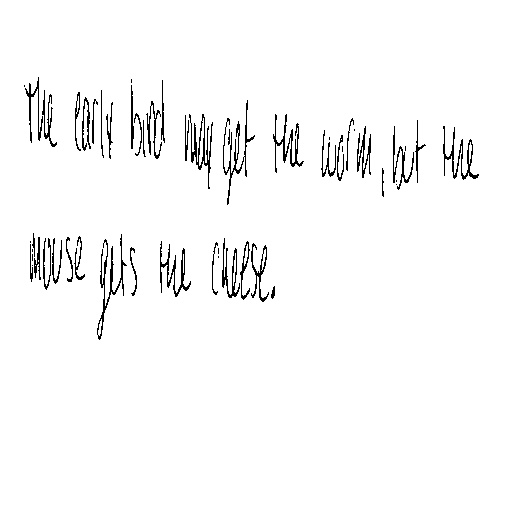 The early bird may get the worm, but the
mouse gets the cheese.